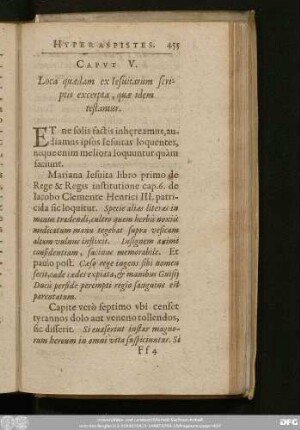 HYPERASPISTES. 455
CAPVT V.
Loca quædam ex Iesuitarum scri-
ptis excerpta, quæ idem
testantur.
ET ne solis factis inhęreamus, au-
diamus ipsos Iesuitas loquentes,
neque enim meliora loquuntur quàm
faciunt.
Mariana Iesuita libro primo de
Rege & Regis institutione cap. 6. de
Iacobo Clemente Henrici III. parri-
cida sic loquitur. Specie alias literas in
manu tradendi, cultro quem herbis noxiis
medicatum manu tegebat supra vesicam
altum vulnus inflixit. Insignem animi
confidentiam, facinus memorabile. Et
paulò post. Cæso rege ingens sibi nomen
fecit, cæde cædes expiata, & manibus Guisij
Ducis perfidè perempti regio sanguine est
parentatum.
Capite verò septimo vbi censet
tyrannos dolo aut veneno tollendos,
sic disserit. Si euaserint instar magno-
rum heroum in omni vita suspiciuntur. Si
Ff 4
DFG